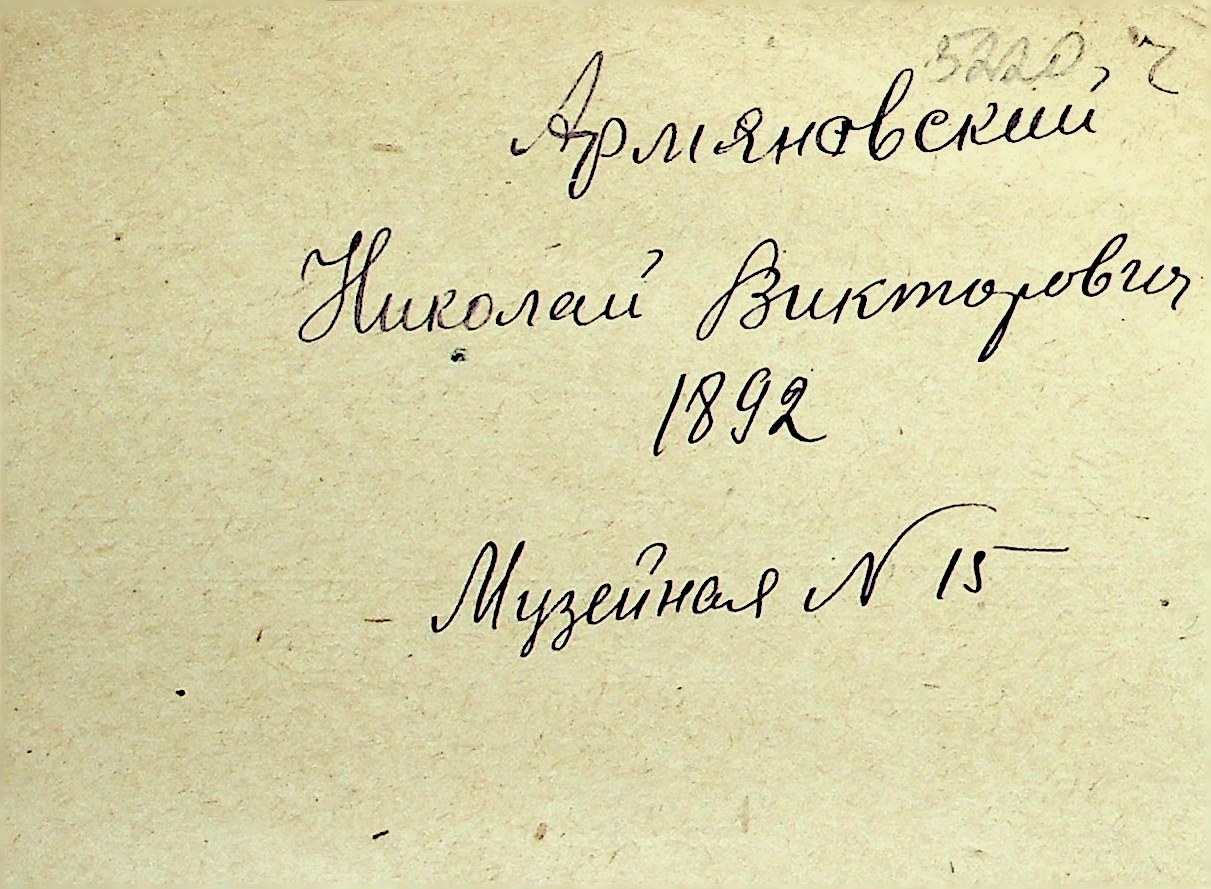 5220
Армяновский
Николай Викторович
1892
Музейная N 15